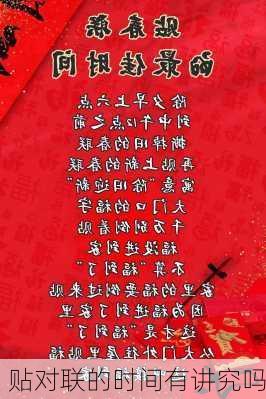 贴春联
的最佳时间
除夕早上六点
到中午12点之前
撕掉旧的春联
再贴上新的春联
寓意"除旧迎新"
大门口的福字
千万别倒着贴
福没进到家
不算"福到了"
家里的福要倒过来贴
因为福进到了家里
这才是"福到了"
从大门外往屋里贴
贴对联的时间有讲究吗